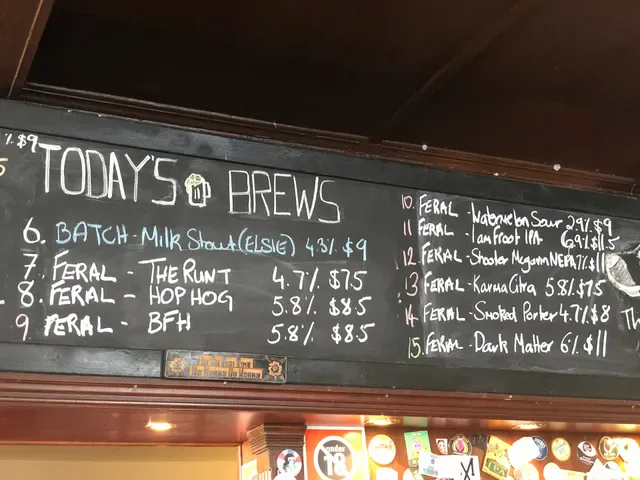 % $9
5
TODAY'S BREWS
6. BATCH - Milk Stout (ELSIE) 4.3% $9
7. FERAL - THE RUNT 4.7% $7.5
8. FERAL - HOP HOG 5.8% $8.5
9 FERAL - BFH 5.8% $8.5
10. FERAL - Watermelon Sour 2.9% $9
11 FERAL - I am Froot IPA 6.9% $11.5
12 FERAL - Shooter Mcgavin NEPA 7% $11
13 FERAL - Karma Citra 5.8% $7.5
14 FERAL - Smoked Porter 4.7% $8
15. FERAL - Dark Matter 6% $11
Th
under
18